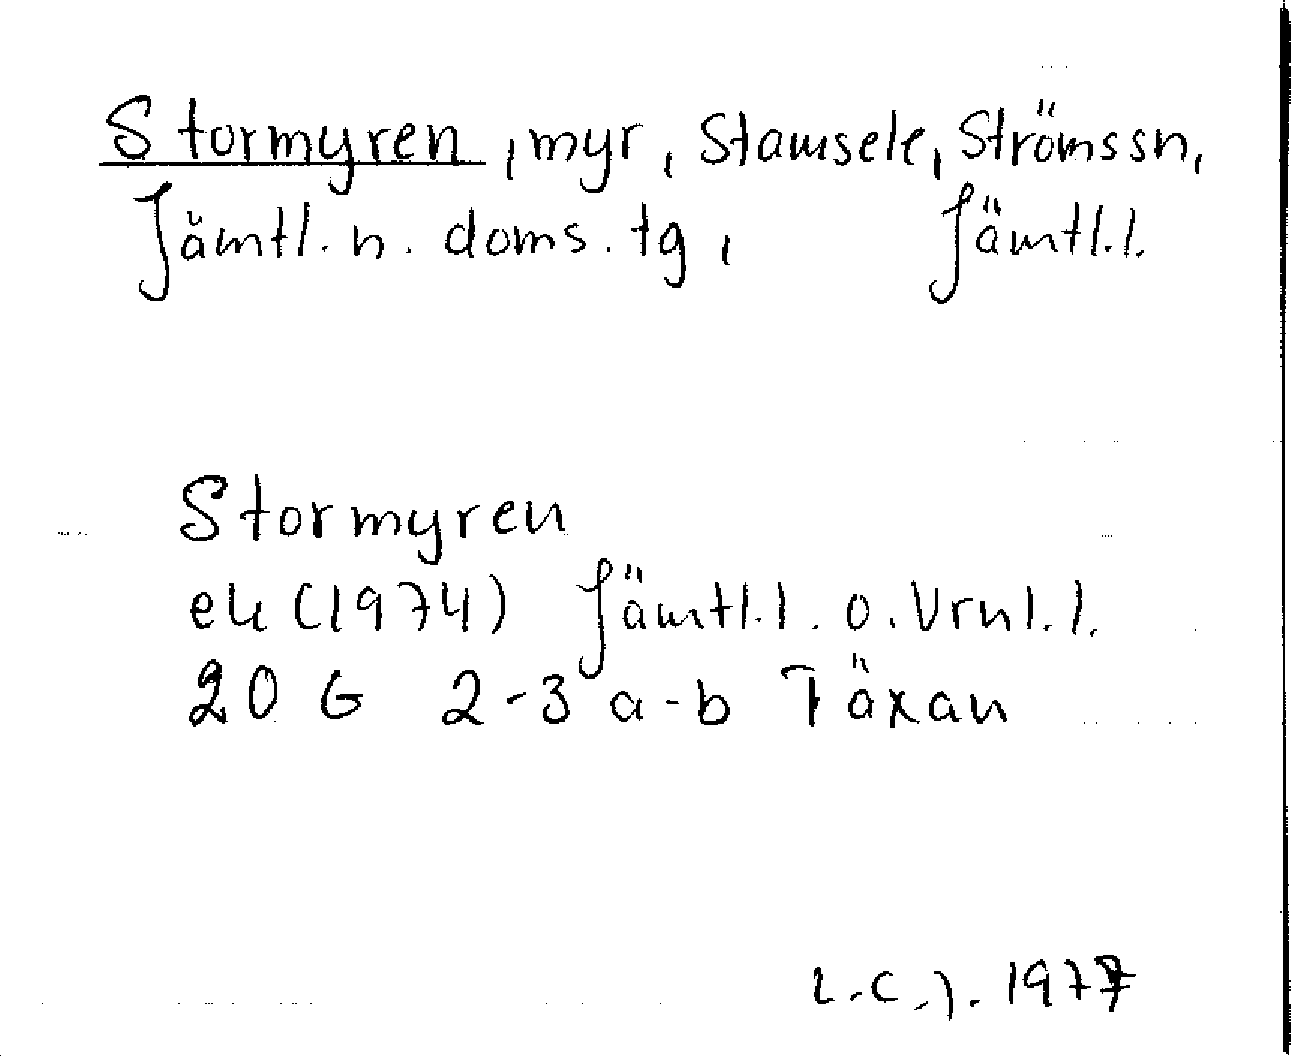 Stormyren, myr, Stamsele, Strömssn,
Jämtl. n. doms. tg, Jämtl.l.
Stormyren
ek (1974) Jämtl.l. o. Vrnl.l.
20 G 2-3 a-b Täxan
L.C.J. 1977